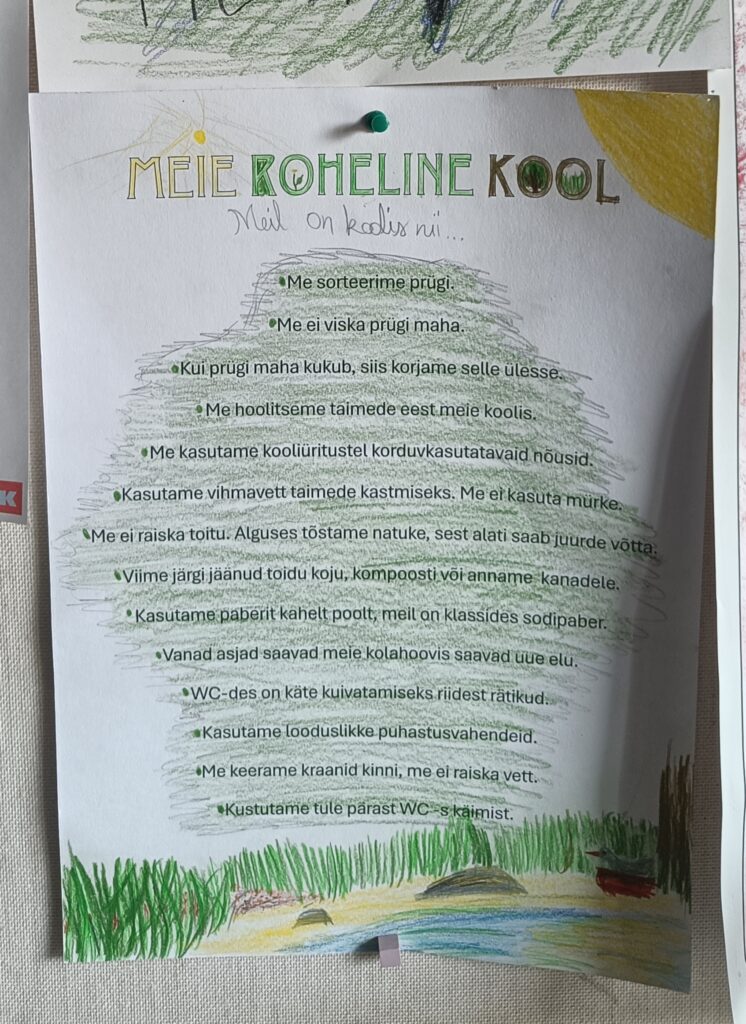 MEIE ROHELINE KOOL
Meil on kodis nii...
•Me sorteerime prügi.
•Me ei viska prügi maha.
•Kui prügi maha kukub, siis korjame selle ülesse.
•Me hoolitseme taimede eest meie koolis.
•Me kasutame kooliüritustel korduvkasutatavaid nõusid.
•Kasutame vihmavett taimede kastmiseks. Me ei kasuta mürke.
•Me ei raiska toitu. Alguses tõstame natuke, sest alati saab juurde võtta.
•Viime järgi jäänud toidu koju, komposti või anname kanadele.
•Kasutame paberit kahelt poolt, meil on klassides sodipaber.
•Vanad asjad saavad meie kolahoovis saavad uue elu.
•WC-des on käte kuivatamiseks riidest rätikud.
•Kasutame looduslikke puhastusvahendeid.
•Me keerame kraanid kinni, me ei raiska vett.
•Kustutame tule pärast WC-s käimist.
K